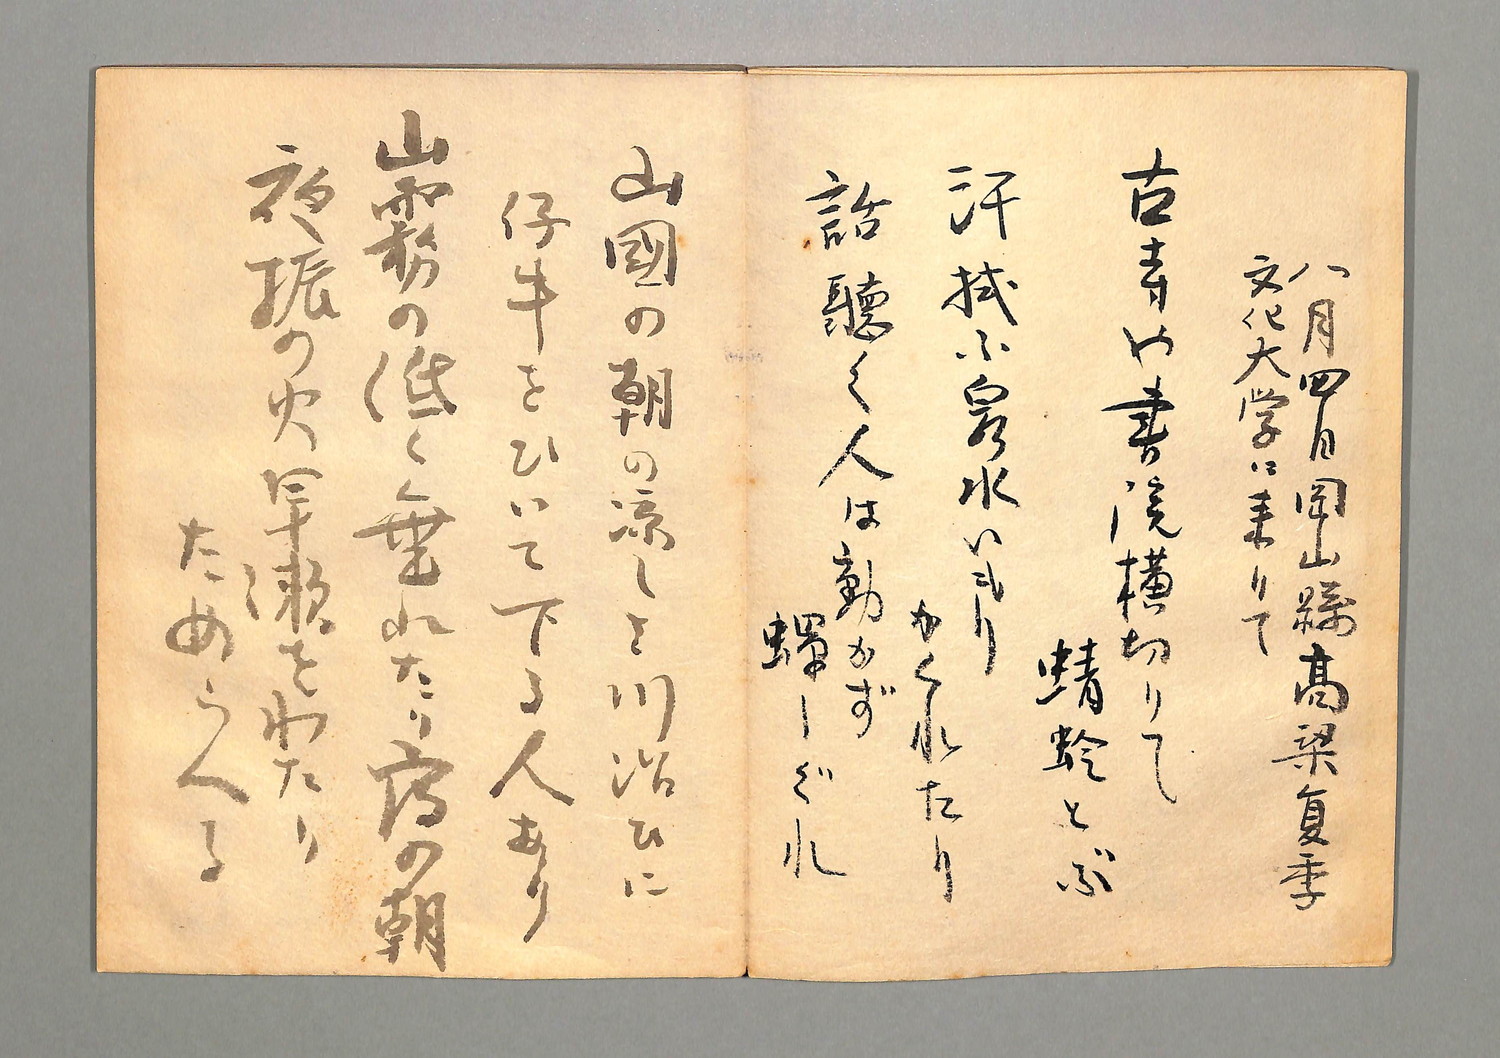 八月四日岡山縣高梁夏季
文化大学に来りて
古寺や書院横切りて
蜻蛉とぶ
汗拭ふ泉水いもり
かくれたり
話聴く人は動かず
蟬しぐれ
山國の朝の涼しさ川沿ひに
仔牛をひいて下る人あり
山霧の低く垂れたり宿の朝
夜振の火早瀬をわたり
ためらへる